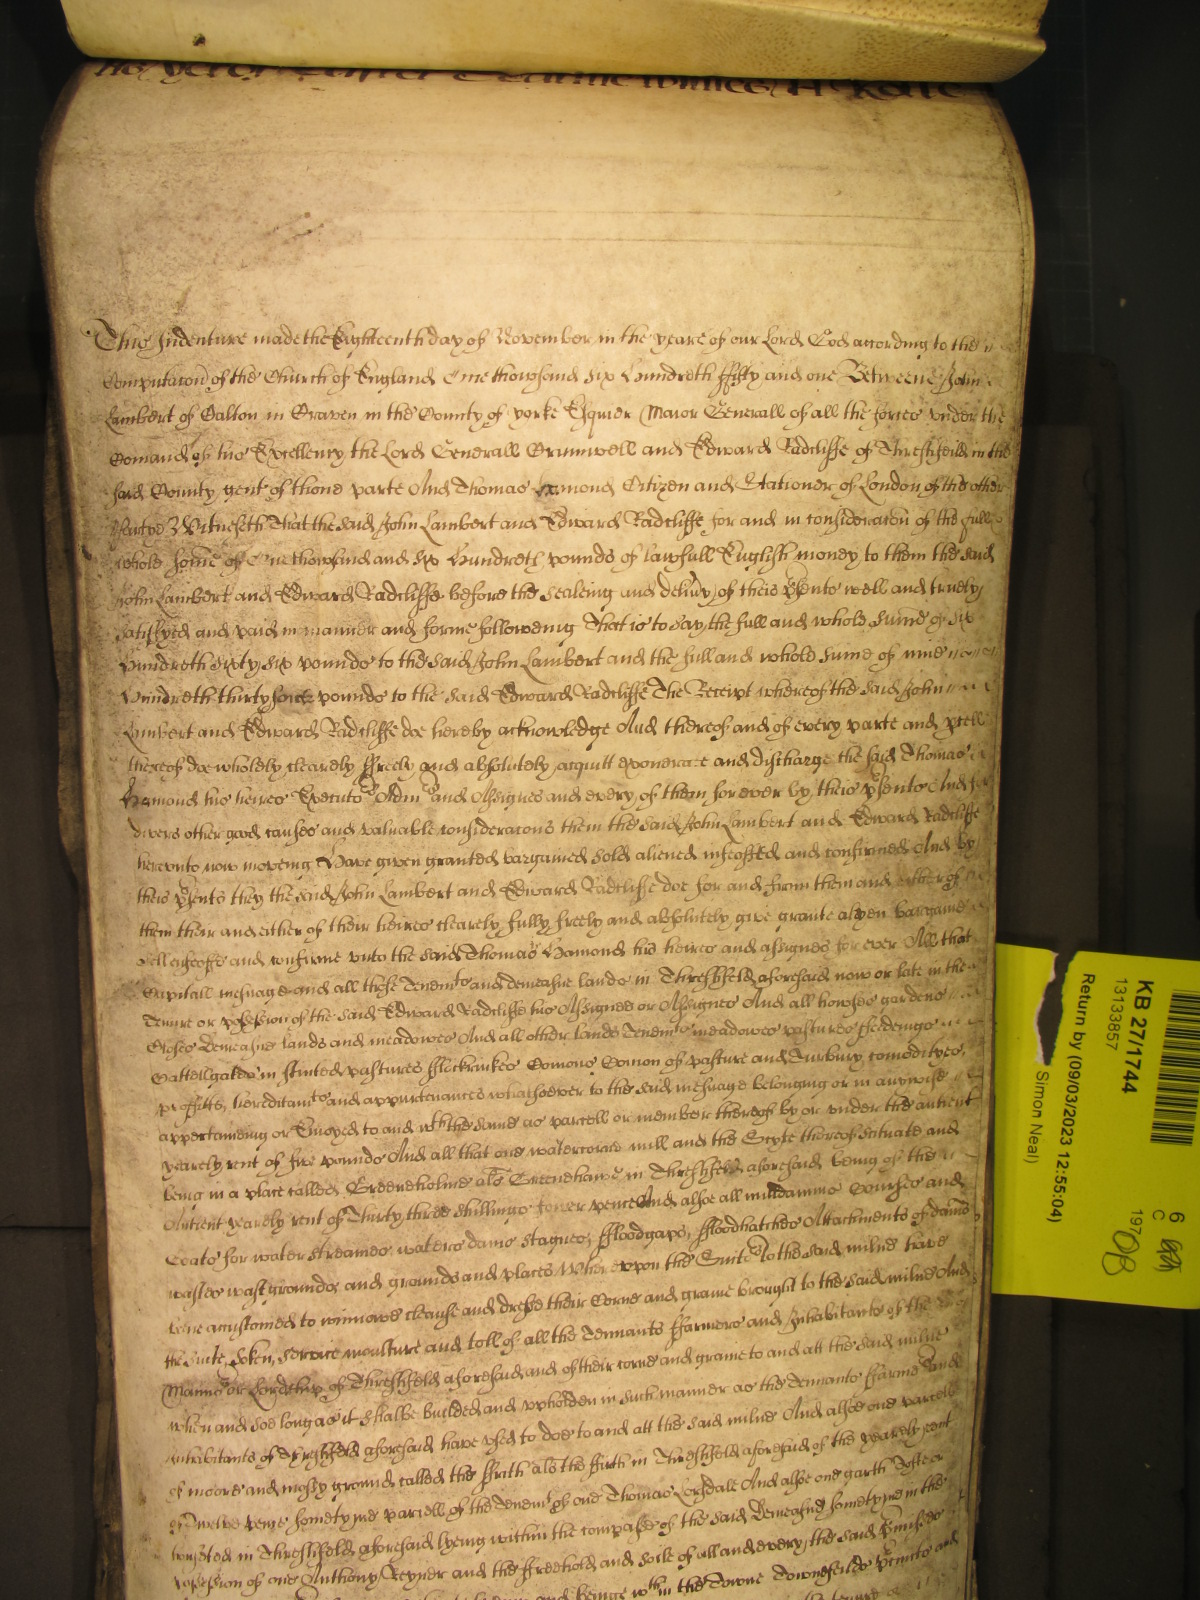 This Indenture made the Eighteenth day of November in the yeare of our Lord God according to the
Computacon of the Church of England One thowsand six hundreth ffifty and one Betweene John
Lambert of Calton in Craven in the County of yorke Esquier Maior Generall of all the forces vnder the
Comand of his Excellency the Lord Generall Crumwell and Edward Radcliffe of Threshfeild in the
said County gent of thone parte And Thomas Hamond Citizen and Stationer of London of the other
partye Witnesseth That the said John Lambert and Edward Radcliffe for and in consideracon of the full
whole some of One thowsand and six hundreth pounds of lawfull English money to them the said
John Lambert and Edward Radcliffe before the sealeing and delivy of theis psents well and truely
satisfyed and paid in manner and forme followeing That is to say the full and whole sume of six
hundreth sixty six pounds to the said John Lambert and the full and whole sume of nine
hundreth thirty foure pounds to the said Edward Radcliffe The Receipt whereof the said John
Lambert and Edward Radcliffe doe hereby acknowledge And thereof and of every parte and pcell
thereof doe wholely clearely ffreely and absolutely acquitt exonerate and discharge the said Thomas
Hamond his heires Executors Admrs and Assignes and every of them for ever by theis psents And for
divers other good causes and valuable consideracons them the said John Lambert and Edward Radcliffe
herevnto now moveing Have given granted bargained sold aliened infeoffed and confirmed And by
theis psents they the said John Lambert and Edward Radcliffe doe for and from them and either of
them their and either of their heires clearely fully freely and absolutely give grante alyen bargaine
sell enfeoffe and confirme vnto the said Thomas Hamond his heires and assignes for ever All that
Capitall mesuage and all those Tenemts and demeasne lands in Threshfeld aforesaid now or late in the
Tenure or possession of the said Edward Radcliffe his Assignee or Assignes And all howses gardens
Closes demeasne lands and meadowes And all other lands Tenemts meadowes pastures ffeedeings
Cattellgates in stinted pastures Comons Comon of pasture and Turbury comodityes
proffitts hereditamts and appurtenances whatsoever to the said mesuage belonging or in anywise
appertaineing or Enioyed to and wth the same as parcell or member thereof by or vnder the antient
yearely rent of five pounds And all that one watercorne mill and the Scyte thereof scituate and
being in a place called Greeneholme als Greenehawe in Threshfeld aforesaid being of the
Antient yearely rent of Thirty three shillings fower pence And alsoe all milldamms Courses and
Coats for water streames waters dams stagnes, ffloodgaps, ffloodhatches Attachments of dams
wastes wast grounds and grounds and places Wherevpon the Suiters to the said milne have
bene accustomed to winnowe cleanse and dresse their Corne and graine brought to the said milne And
the suite, soken, service moulture and toll of all the Tennants ffarmers and Inhabitants of the
Mannor or Lordshipp of Threshfeld aforesaid and of their corne and graine to and att the said milne
when and soe long as it shalbe builded and vpholden in such manner as the tennants ffarmers and
inhabitants of Threshfeld aforesaid have vsed to doe to and att the said milne And alsoe one parcell
of moore and mossy ground called the ffrith als the ffirth in Threshfeld aforesaid of the yearely rent
of Twelve pence sometyme parcell of the Tenemt of one Thomas And alsoe one garth Tofte or
in Threshfeld aforesaid lyeing within the compasse of the said Demeasne sometyme in the
possession of one Anthony Reyner and the freehold and soile of all and every the said pmisses
and beinge wthin the Towne townefeilds and
KB 27/1744
13133857
Return by (09/03/2023 12:55:04)
Simon Neal)
6
C
197